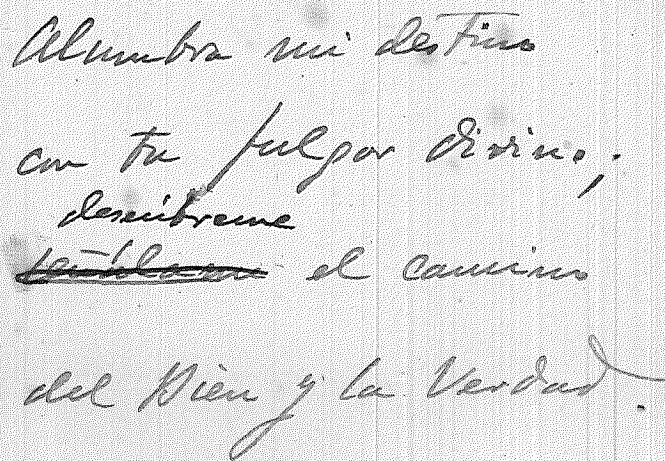 Alumbra mi destino
con tu fulgor divino;
descúbreme
señálame el camino
del Bien y la Verdad.